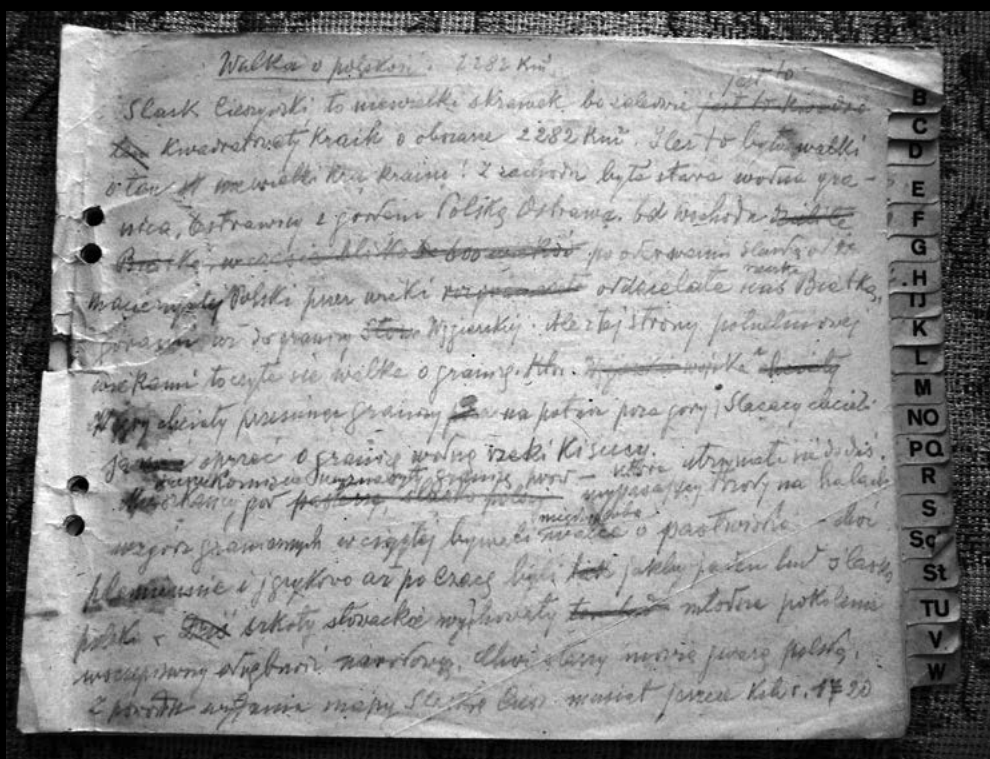 Walka o polskość. 2282 Km².
jest to
Śląsk Cieszyński to niewielki skrawek bo zaledwie jest to
ten kwadratowaty kraik o obszarze 2282 Km². Ileż to było walki
o ten niewielki kraj krainę! Z zachodu była stara wodna gra-
nica, Ostrawica z grodem Polską Ostrawą. Od wschodu
Białka, po oderwaniu Śląska od
macierzystej Polski przez wieki oddzielała nas rzeka Białka,
górami aż do granicy Węgierskiej. Ale z tej strony południowej
wiekami toczyła się walka o granicę.
Węgry chciały przesunąć granicę na północ poza góry, Ślązacy chcieli
oprzeć o granicę wodną rzeki Kisucy.
granicę, które utrzymała się do dziś.
Mieszkańcy gór wypasający trzody na halach
między sobą
wzgórz granicznych w ciągłej bywali walce o pastwiska - choć
plemiennie i językowo aż po Czacę byli jakby jeden lud śląsko
polski. Dziś szkoły słowackie wychowały młodsze pokolenie
odrębność narodową. Choć starzy mówią gwarą polską.
Z powodu wydania mapy Śląska Ciesz. musiał jeszcze 1720
B
C
D
E
F
G
H
IJ
K
L
M
NO
PQ
R
S
Sc
St
TU
V
W